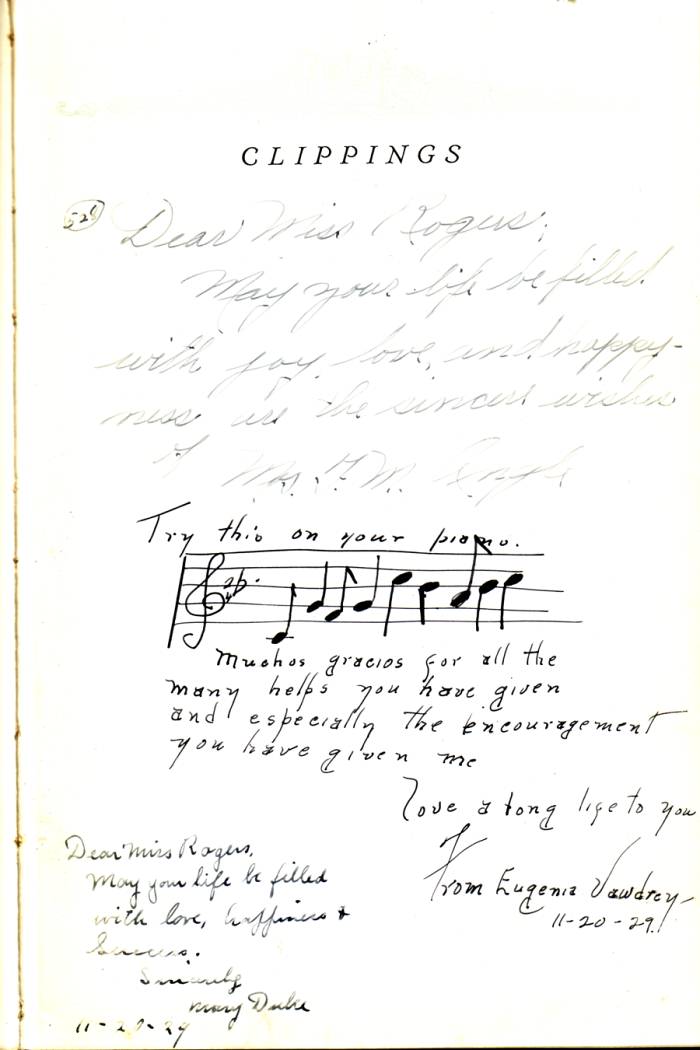 CLIPPINGS
Dear Miss Rogers,
May your life be filled
with joy, love, and happy-
ness are the sincere wishes
of Mrs. M.
Try this on your piano.
Muchos gracios for all the
many helps you have given
and especially the encouragement
you have given me
Love a long life to you
From Eugenia Vawdrey
11-20-29
Dear Miss Rogers,
May your life be filled
with love, happiness &
Success.
Sincerely
Mary Duke
11-20-29